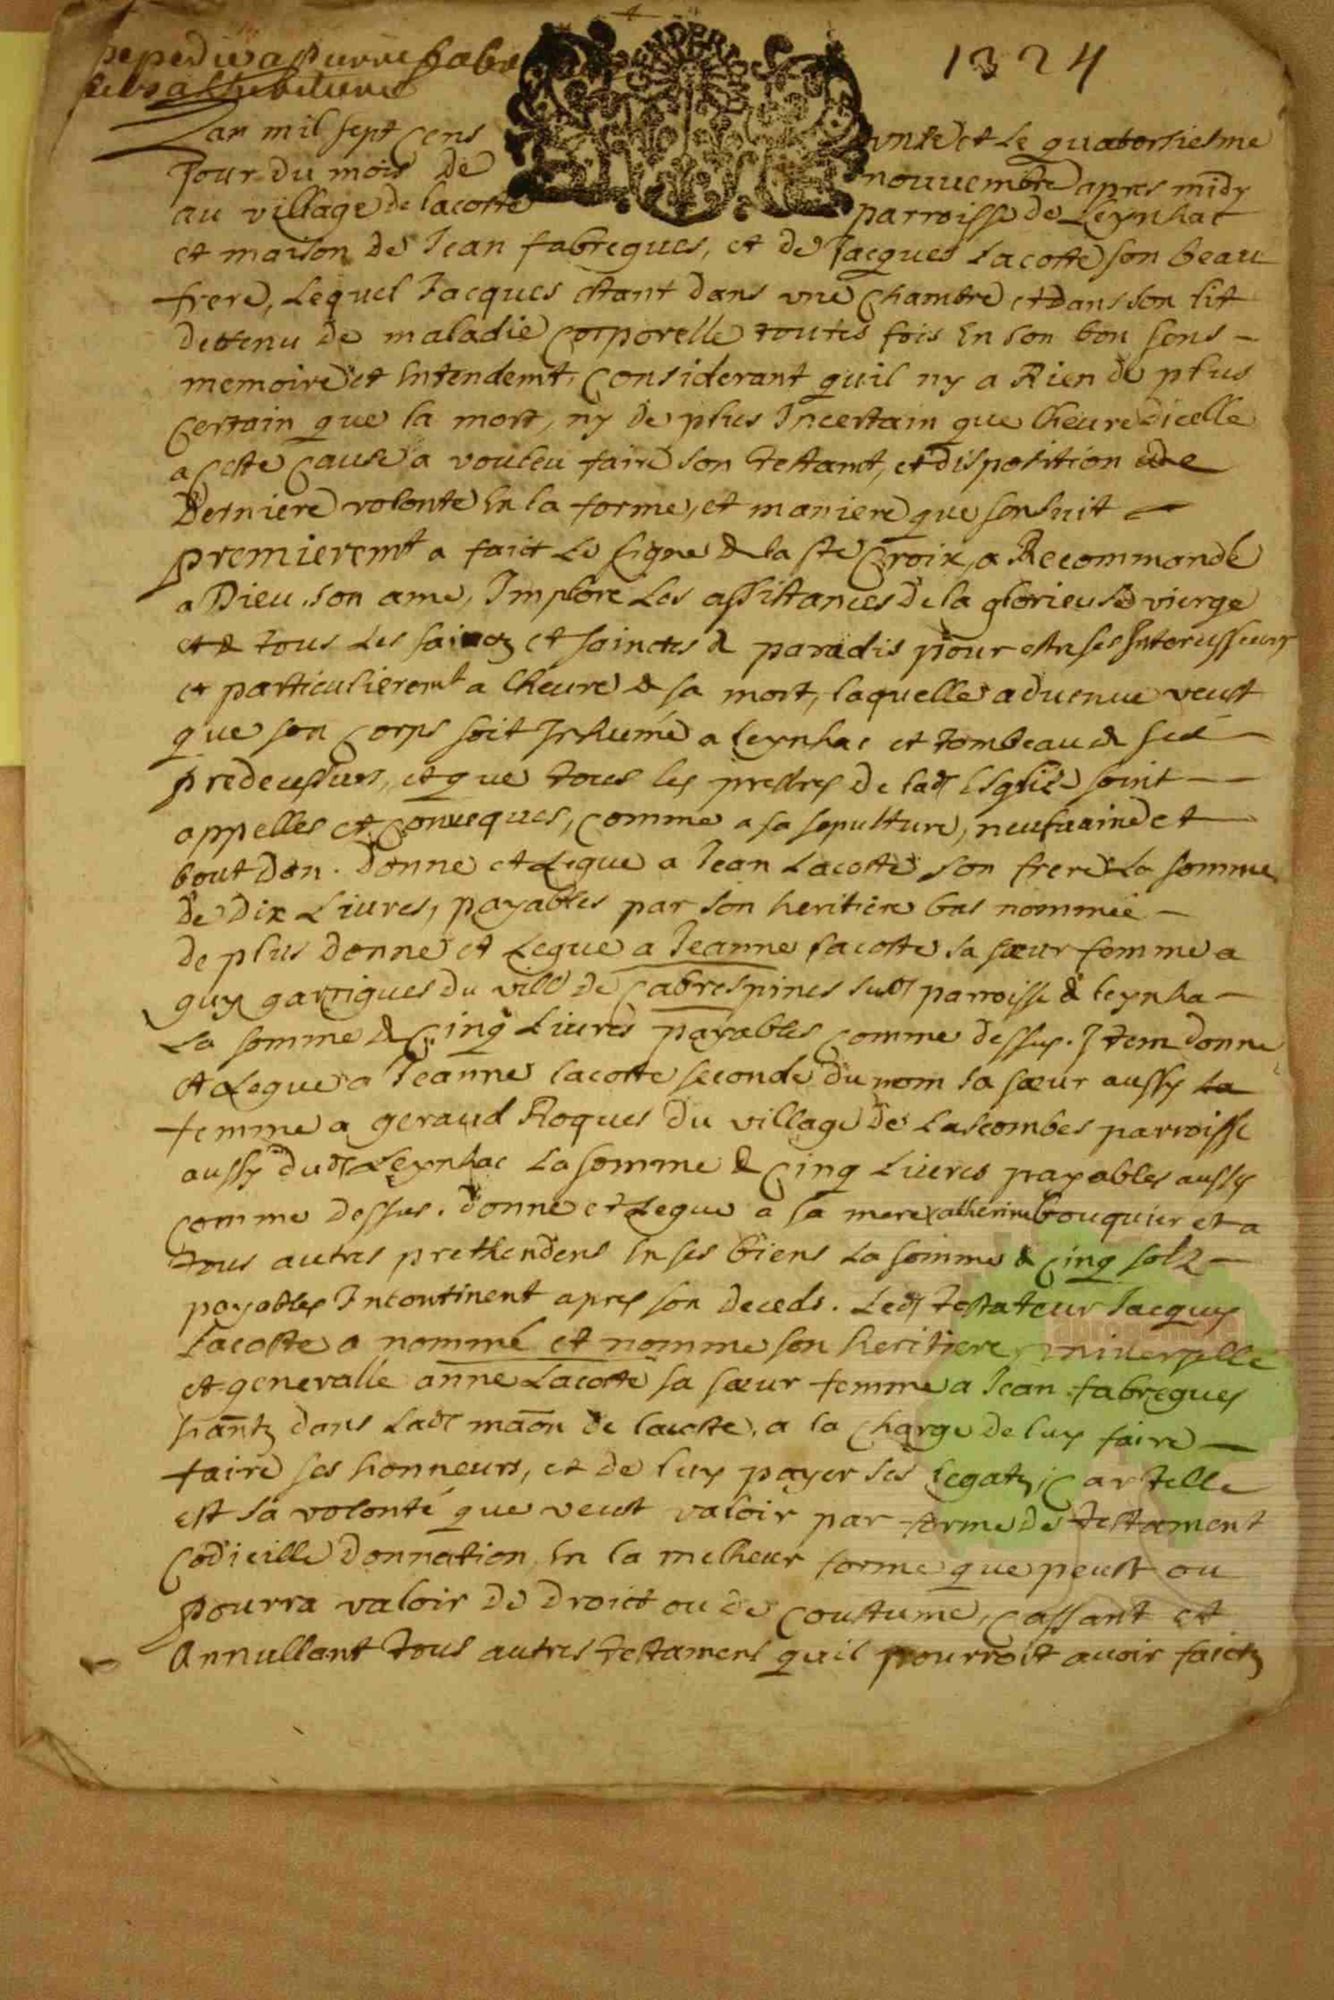 1324
expedié a pierre fabre
Lan mil sept cens unze et le quatorsiesme
Jour du mois de nouuembre apres midy
au village de lacoste parroisse de Leynhac
et maison de Jean fabregues, et de Jacques Lacoste son beau
frere, Lequel Jacques estant dans une chambre et dans son lit
dettenu de maladie corporelle toutes fois en son bon sens
memoire et entendemt, considerant quil ny a Rien de plus
certain que la mort, ny de plus Incertain que lheure dicelle
a ceste cause a vouleu faire son testamt, et disposition de
derniere volonte en la forme, et maniere que sensuit
premieremt a faict le signe de la ste Croix, a Recommandé
a Dieu son ame, Imploré Les assistances de la glorieuse vierge
et de tous Les sainctz et sainctes de paradis pour estre ses Intersesseurs
et particulieremt a lheure de sa mort, laquelle aduenue veust
que son corps soit Inhumé a leynhac et tombeau de ses
predecesseurs, et que tous les prestres de ladt Esglise soint
appelles et conuoqués, comme a sa sepulture, neufuaine et
bout dan. Donne et Legue a Jean Lacoste son frere La somme
de Dix Liures, payables par son heritiere bas nommée
de plus donne et Legue a Jeanne Lacoste sa sœur femme a
guy garrigues du villa de Cabrespines susdt parroisse de leynha
La somme de Cinq Liures payables comme dessus. Item donne
et Legue a Jeanne lacoste seconde du nom sa sœur aussy La
femme a geraud Roques du village de Lascombes parroisse
aussy dudt Leynhac La somme de Cinq Liures payables aussy
comme dessus. donne et Legue a sa mere catherine bouquier et a
tous autres prethendens en ses biens La somme de cinq solz
payables Incontinent apres son deceds. Ledt testateur Jacques
Lacoste a nommé et nomme son heritiere universelle
et generalle anne Lacoste sa sœur femme a Jean fabregues
hantz dans Ladt maon de lacoste, a la charge de luy faire
faire ses honneurs, et de luy payer ses legatz, Car telle
est sa volonté que veust valoir par forme de testament
Codicille donnation en la melheur forme que peust ou
pourra valoir de droict ou de coustume, cassant et
Annullant tous autres testamens quil pourroit auoir faictz